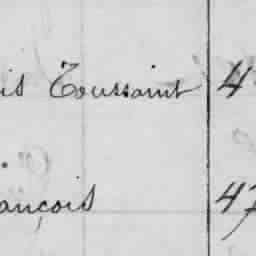 is Toussaint 4
ançois 47